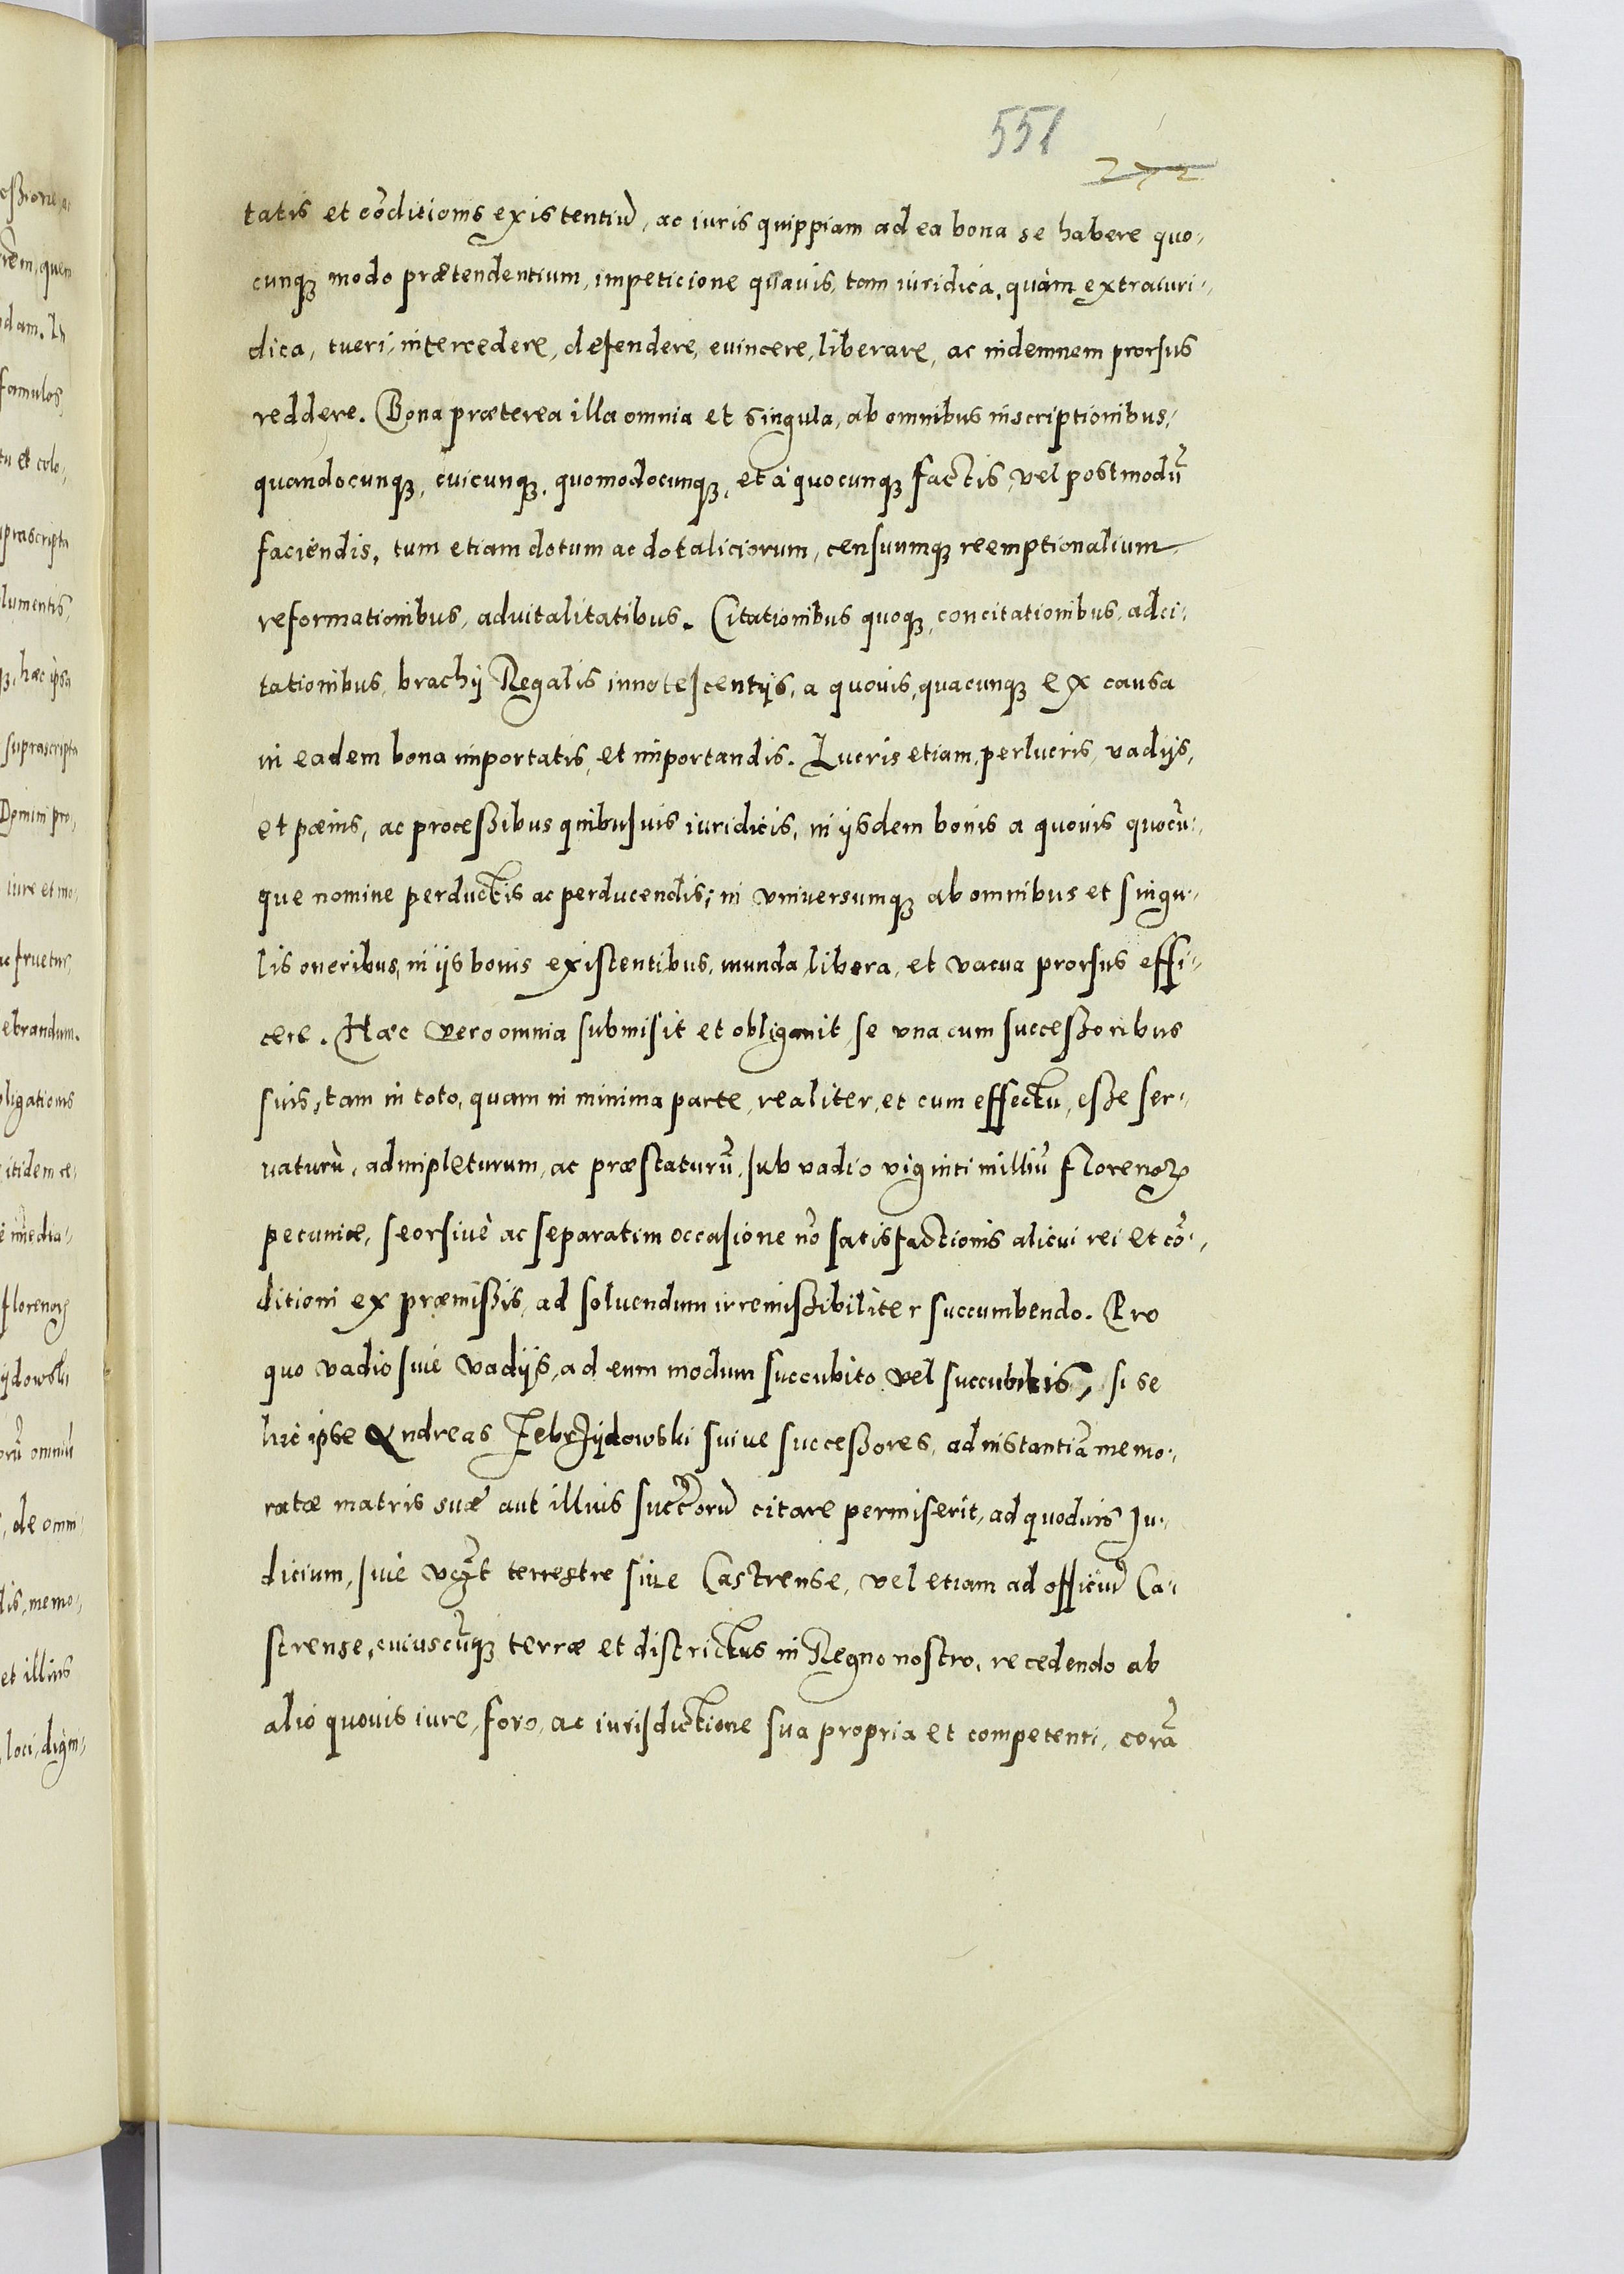 551
272
tatis et cōditionis existentiū, ac iuris quippiam ad ea bona se habere quo,
cunqȝ modo prætendentium, impeticione quavis, tam iuridica, quàm extraiuri,
dica, tueri, intercedere, defendere, euincere, liberare, ac indemnem prorsus
reddere. Bona præterea illa omnia et singula, ab omnibus inscriptionibus,
quandocunqȝ, cuicunqȝ, quomodocunqȝ, et à quocunqȝ factis, vel postmodū
faciendis, tum etiam dotum ac dotaliciorum, censuumqȝ reemptionalium
reformationibus, aduitalitatibus. Citationibus quoqȝ, concitationibus, adci,
tationibus, brachij Regalis innotescentijs, a quouis, quacunqȝ ex causa
in eadem bona importatis, et importandis. Lucris etiam, perlucris, vadijs,
et pœnis, ac processibus quibusuis iuridicis, in ijsdem bonis a quouis quocū,
que nomine perductis ac perducendis; in vniuersumqȝ ab omnibus et singu,
lis oneribus, in ijs bonis existentibus, munda, libera, et vacua prorsus effi,
cere. Hæc vero omnia submisit et obligauit se vna cum successoribus
suis, tam in toto, quam in minima parte, realiter, et cum effectu, esse ser,
uaturū, adimpleturum, ac præstaturū, sub vadio viginti milliū florenoꝝ
pecuniæ, seorsiuè ac separatim occasione nō satisfactionis alicui rei et cō,
ditioni ex præmissis, ad soluendum irremissibiliter succumbendo. Pro
quo vadio siue vadijs, ad eum modum succubito vel succubitis, si se
hic ipse Andreas Zebrzydowski suiue successores, ad instantiā memo,
ratæ matris suæ aut illius succōrū citare permiserit, ad quoduis Ju,
dicium, siue terrestre siue Castrense, vel etiam ad officiū Ca,
strense, cuiuscūqȝ terræ et districtus in Regno nostro, recedendo ab
alio quouis iure, foro, ac iurisdictione sua propria et competenti, corā